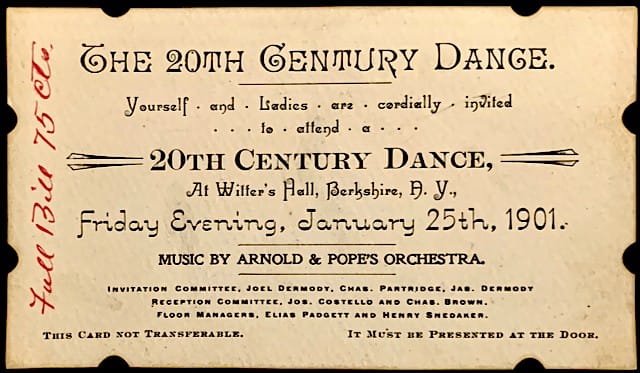 THE 20TH CENTURY DANCE.
Yourself · and · Ladies · are · cordially · invited
· · · · to · attend · a · · · ·
20TH CENTURY DANCE,
At Witter's Hall, Berkshire, N. Y.,
Friday Evening, January 25th, 1901.
MUSIC BY ARNOLD & POPE'S ORCHESTRA.
INVITATION COMMITTEE, JOEL DERMODY, CHAS. PARTRIDGE, JAS. DERMODY
RECEPTION COMMITTEE, JOS. COSTELLO AND CHAS. BROWN.
FLOOR MANAGERS, ELIAS PADGETT AND HENRY SNEDAKER.
THIS CARD NOT TRANSFERABLE. IT MUST BE PRESENTED AT THE DOOR.
Full Bill 75 cts.